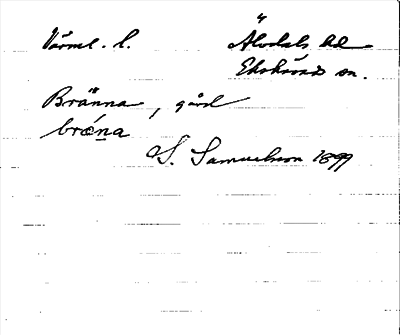 Värml. l. Älvdals hd
Ekshärads sn.
Bränna, gård
brǽna
S. Samuelsson 1899